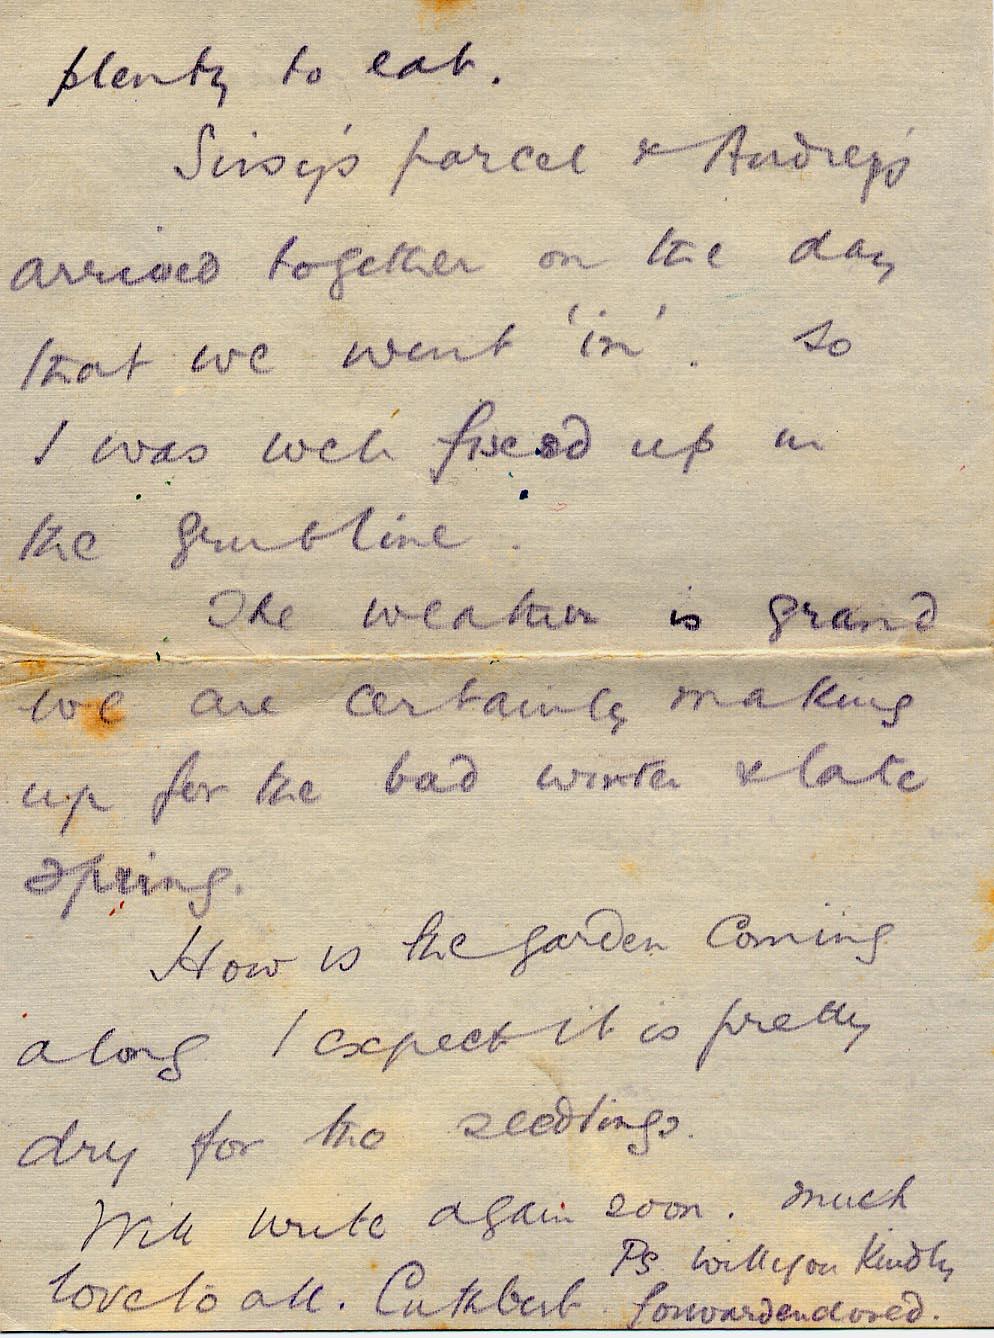 plenty to eat.
Sissy's parcel & Audrey's
arrived together on the day
that we went 'in'. So
I was well fixed up in
the grub line.
The weather is grand
we are certainly making
up for the bad winter & late
spring.
How is the garden coming
along I expect it is pretty
dry for the seedlings.
Will write again soon. Much
love to all. Cuthbert.
Ps. will you kindly
forward enclosed.